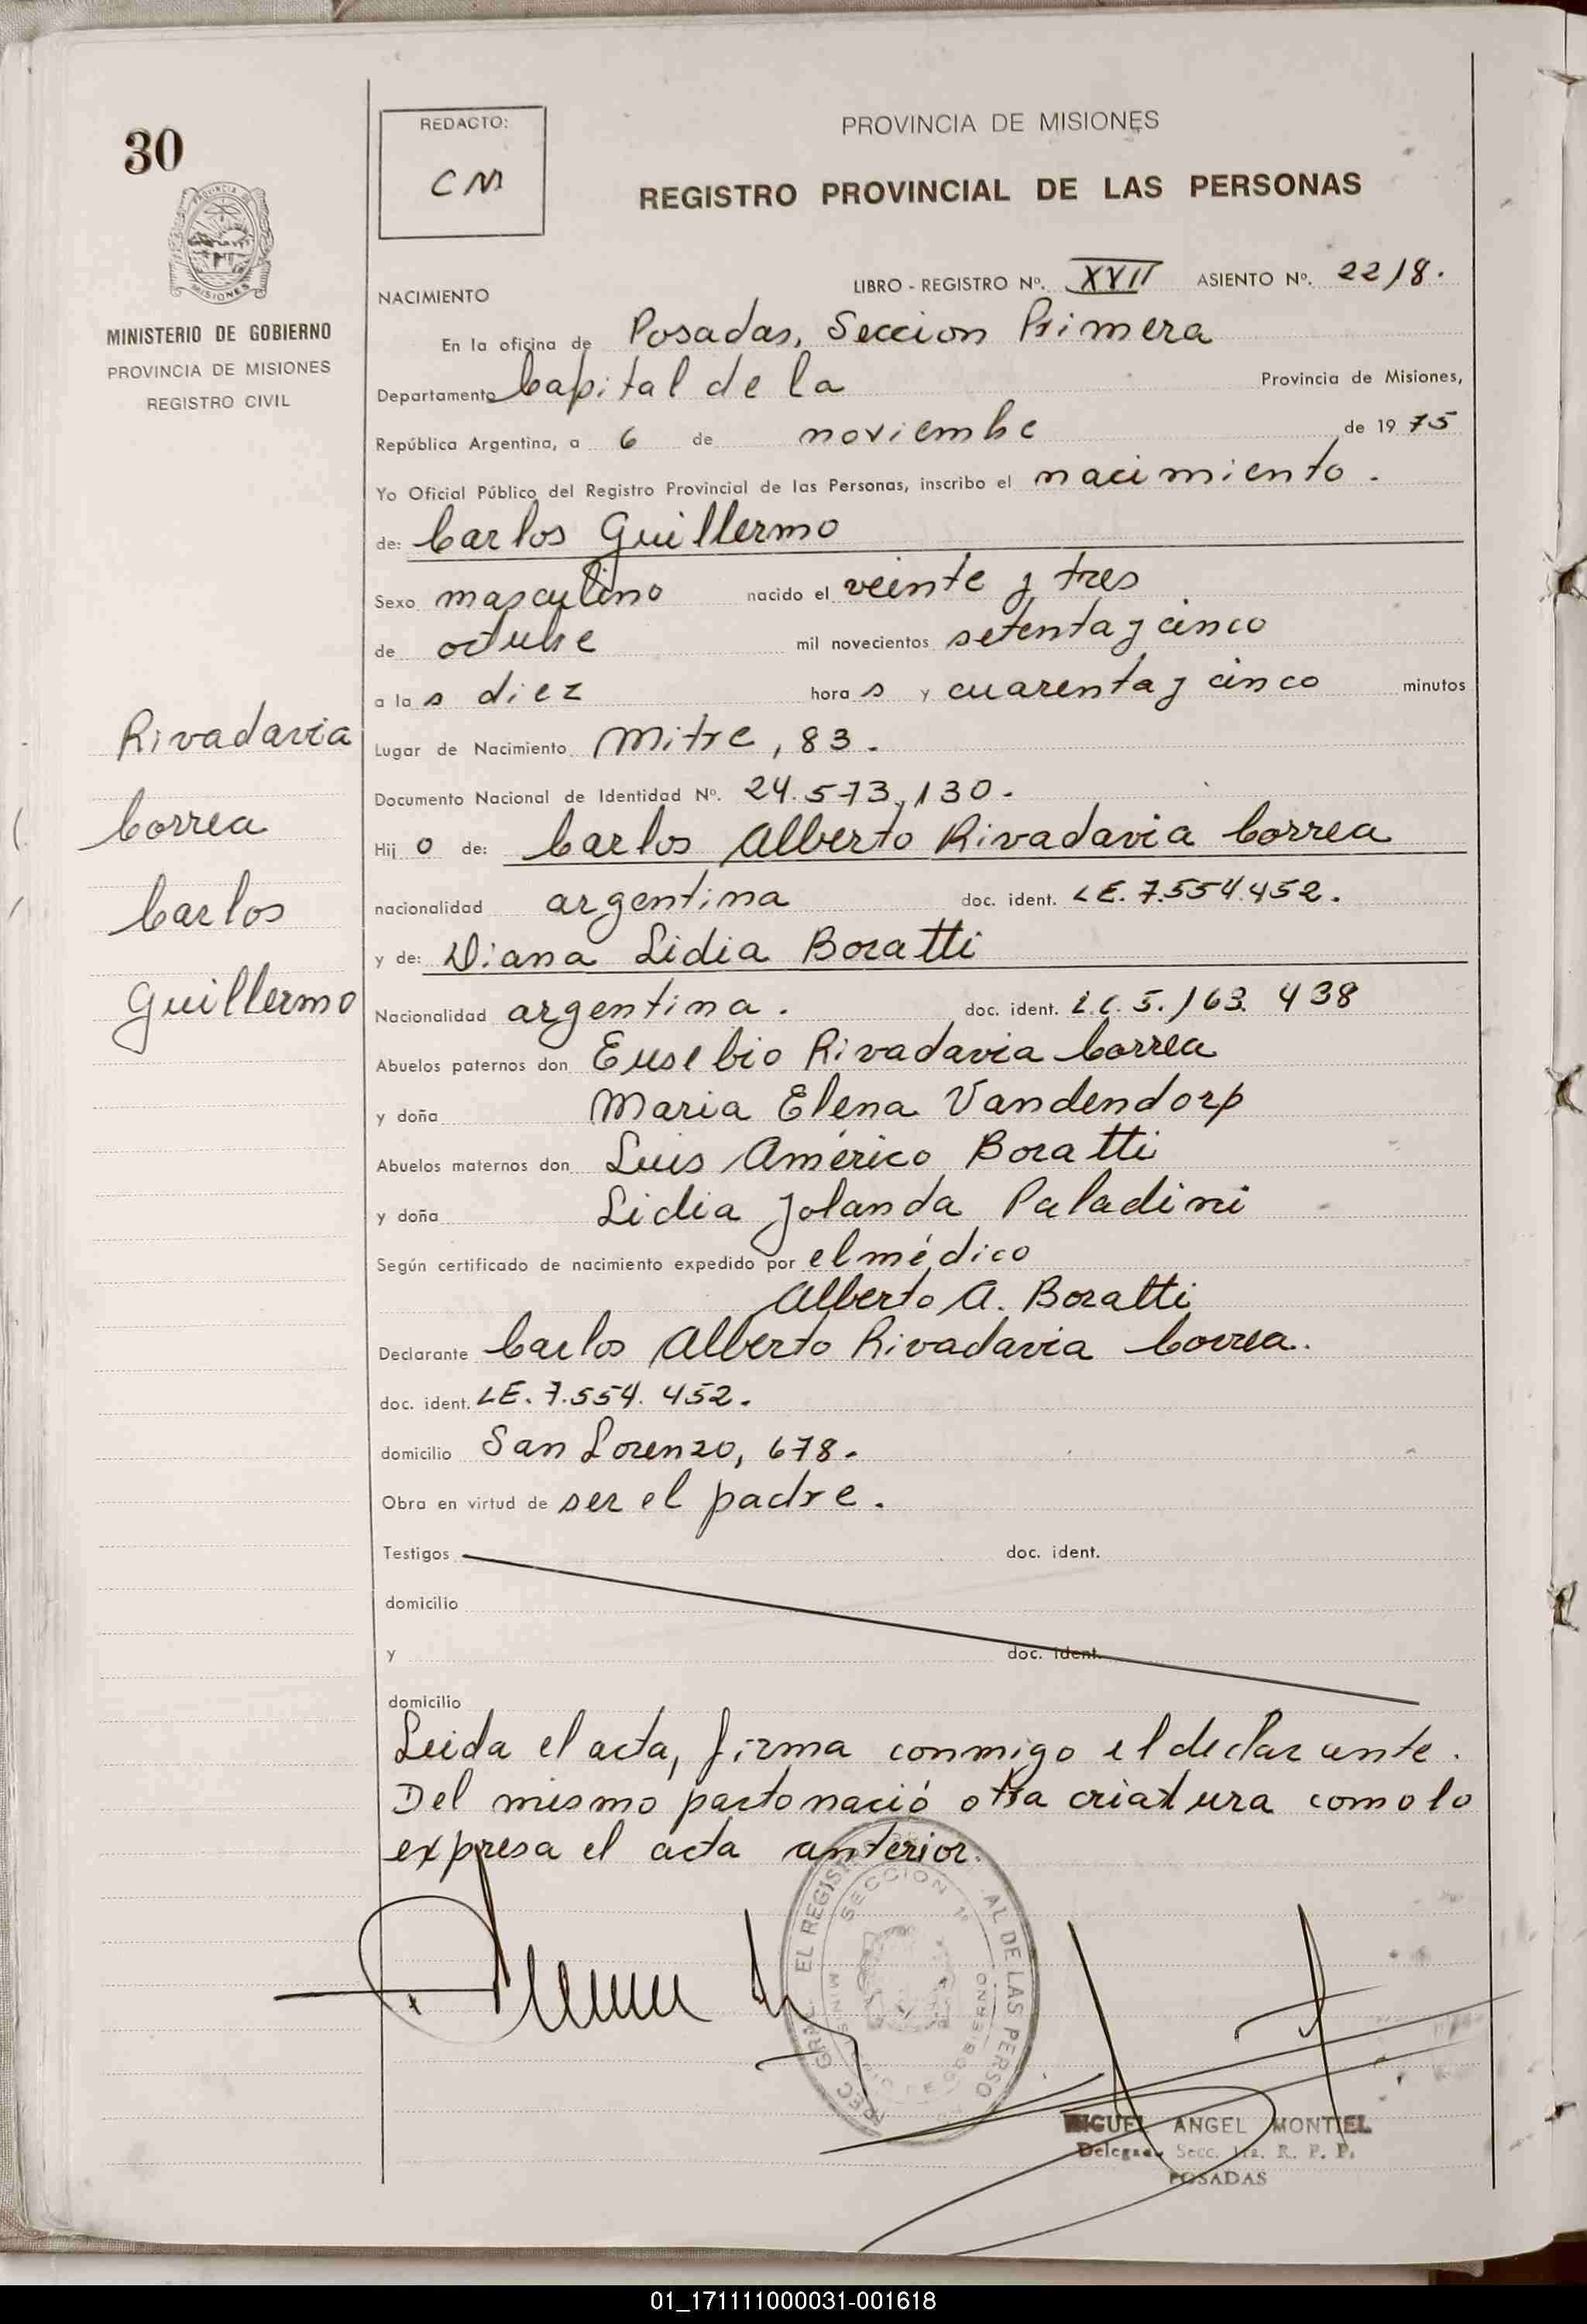 30
PROVINCIA DE
MISIONES
MINISTERIO DE GOBIERNO
PROVINCIA DE MISIONES
REGISTRO CIVIL
Rivadavia
Correa
Carlos
Guillermo
REDACTO:
CM
PROVINCIA DE MISIONES
REGISTRO PROVINCIAL DE LAS PERSONAS
NACIMIENTO LIBRO - REGISTRO Nº. XVII ASIENTO Nº. 2218.
En la oficina de Posadas, Seccion Primera
Departamento Capital de la Provincia de Misiones,
República Argentina, a 6 de noviembre de 1975
Yo Oficial Público del Registro Provincial de las Personas, inscribo el nacimiento.
de: Carlos Guillermo
Sexo masculino nacido el veinte y tres
de octubre mil novecientos setenta y cinco
a las diez horas y cuarenta y cinco minutos
Lugar de Nacimiento Mitre, 83.
Documento Nacional de Identidad Nº. 24.573,130.
Hijo de: Carlos Alberto Rivadavia Correa
nacionalidad argentina doc. ident. LE. 7.554.452.
y de: Diana Lidia Boratti
Nacionalidad argentina. doc. ident. L.C. 5.163.438
Abuelos paternos don Eusebio Rivadavia Correa
y doña Maria Elena Vandendorp
Abuelos maternos don Luis Américo Boratti
y doña Lidia Jolanda Paladini
Según certificado de nacimiento expedido por el médico
Alberto A. Boratti
Declarante Carlos Alberto Rivadavia Correa.
doc. ident. LE. 7.554.452.
domicilio San Lorenzo, 678.
Obra en virtud de ser el padre.
Testigos doc. ident.
domicilio
y doc. ident.
domicilio
Leida el acta, firma conmigo el declarante.
Del mismo parto nació otra criatura como lo
expresa el acta anterior.
SECCION 1ª
MIGUEL ANGEL MONTIEL
Delegado Secc. 1ra. R. P. P.
POSADAS
01_171111000031-001618